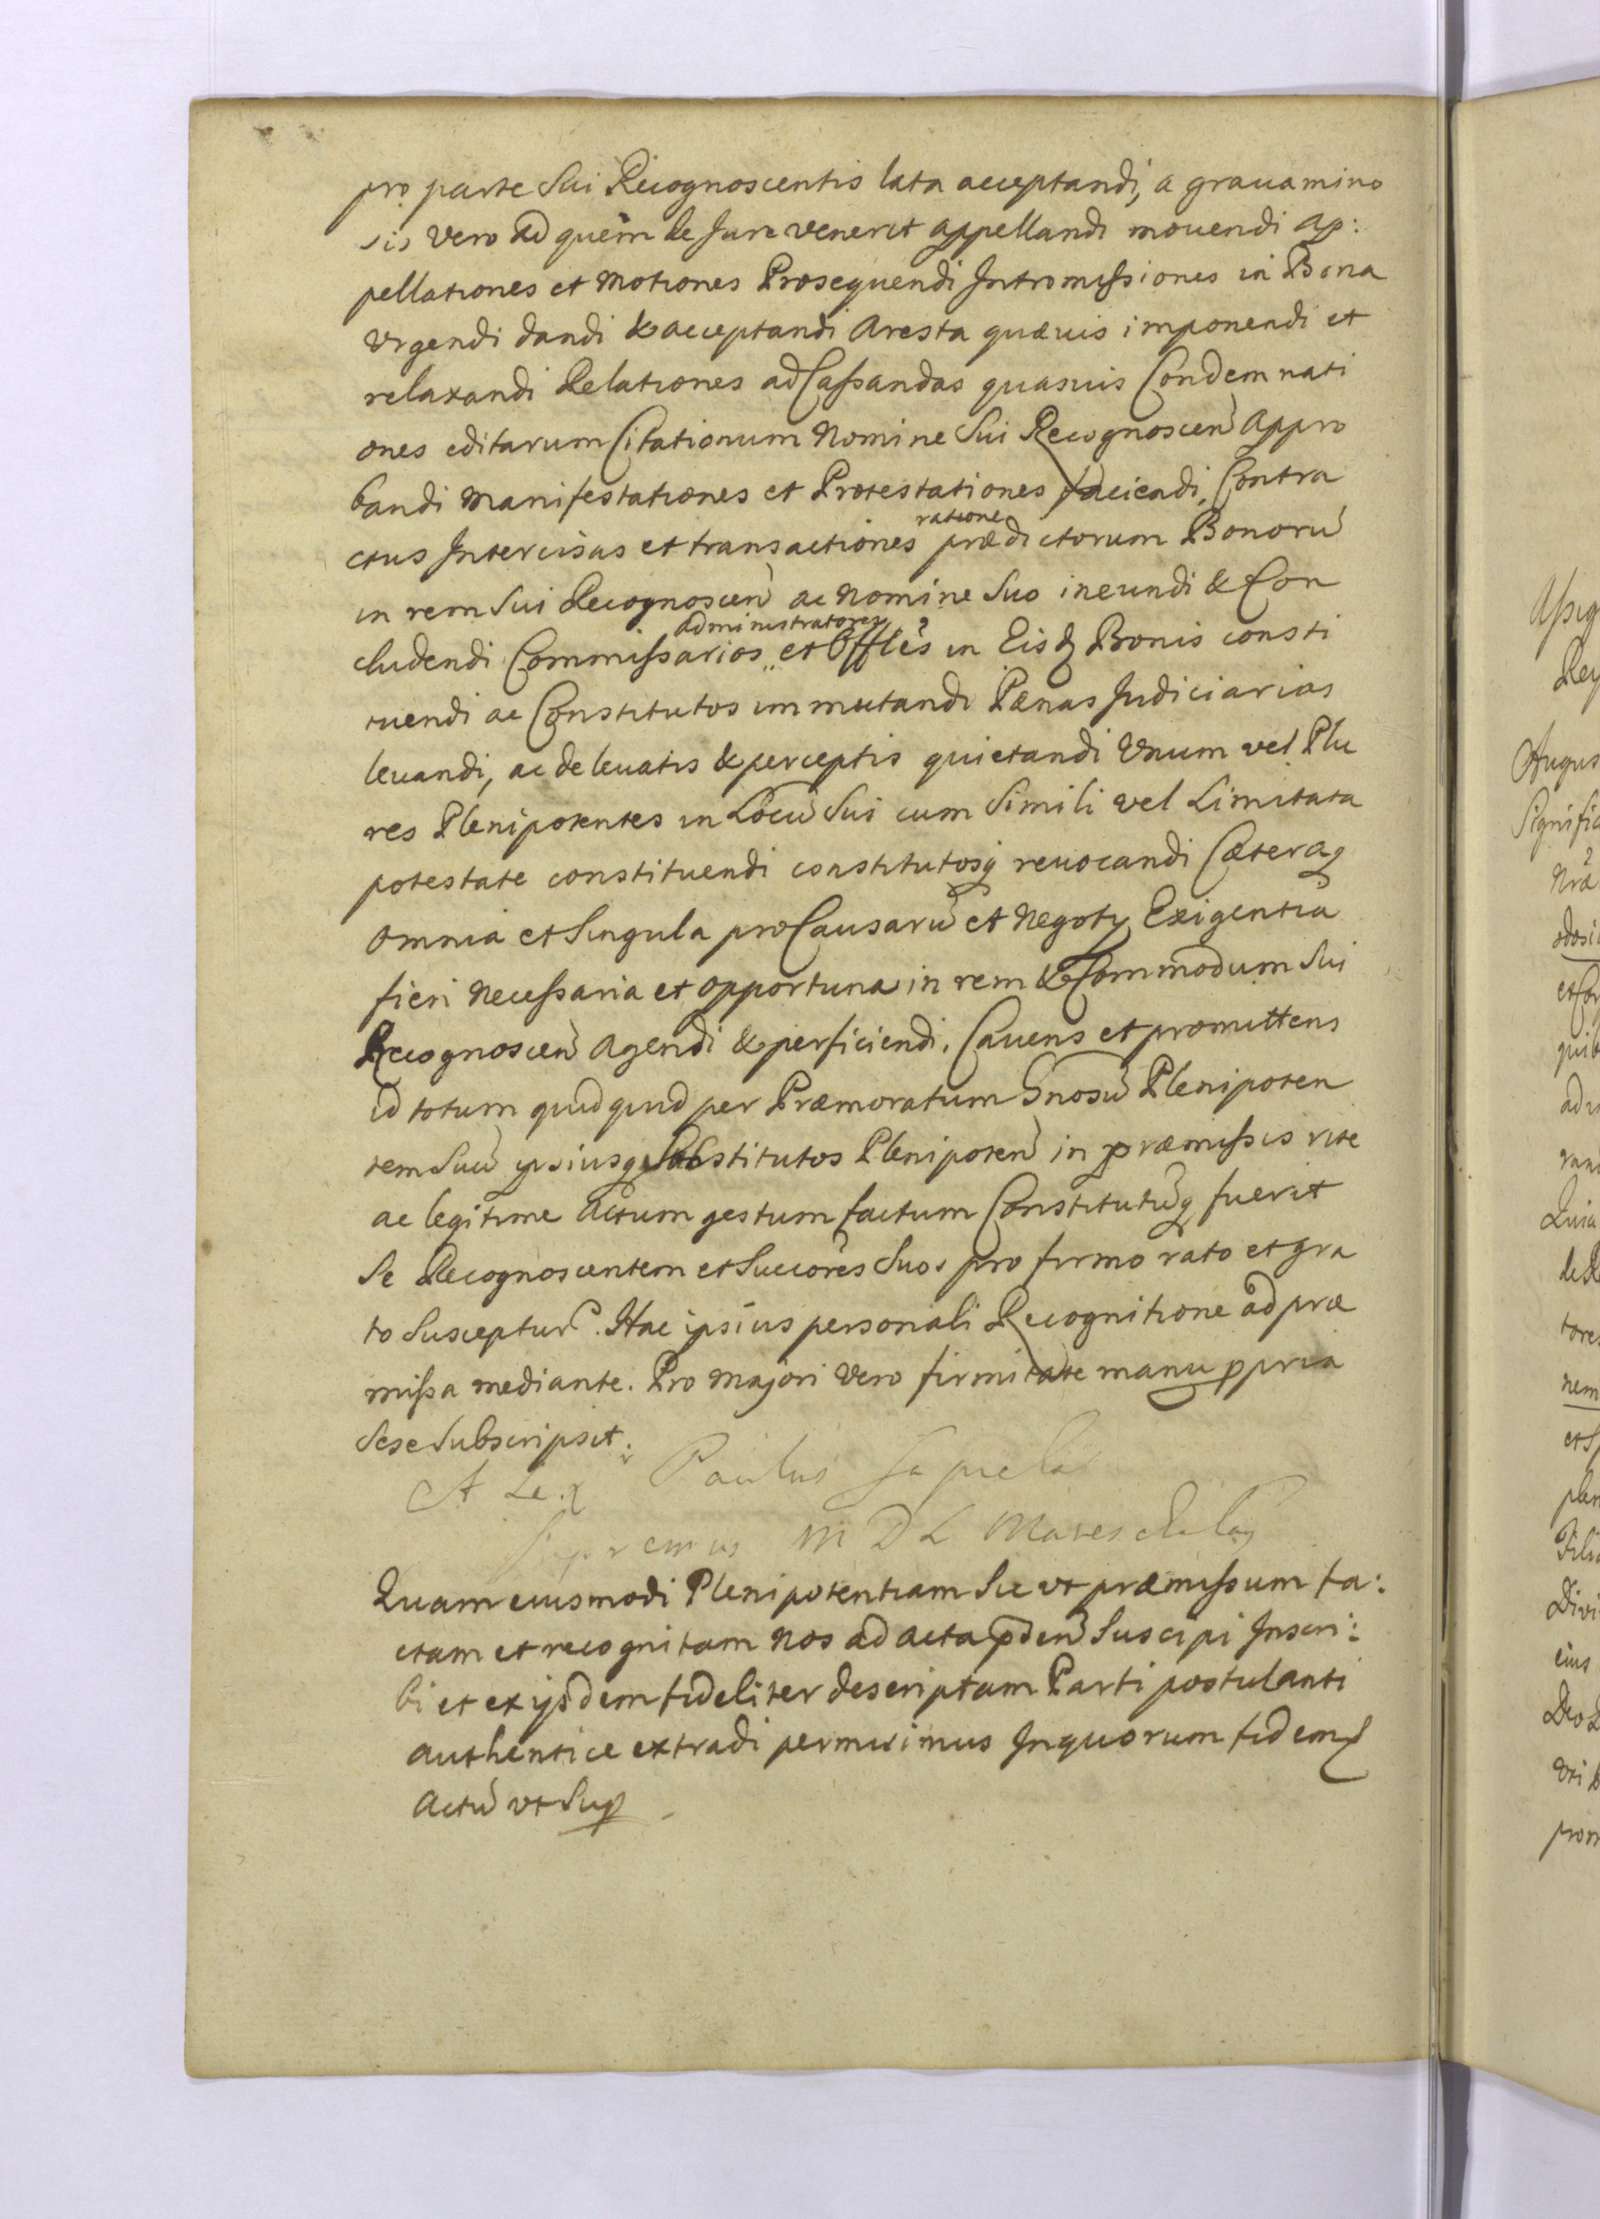 pro parte Sui Recognoscentis lata acceptandi, a grauamino
sis vero ad quem de Jure venerit appellandi mouendi ap:
pellationes et motiones Prosequendi Intromissiones in Bona
vrgendi dandi & acceptandi Aresta quæuis imponendi et
relaxandi Relationes ad Cassandas quasuis Condemnati
ones editarum Citationum Nomine Sui Recognoscen Appro
bandi Manifestationes et Protestationes faciendi, Contra
ctus Intercisas et transactiones ratione prædictorum Bonorū
in rem Sui Recognoscen ac Nomine Suo ineundi & Con
cludendi Commissarios administratores et Offles in Eisq Bonis consti
tuendi ac Constitutos immutandi Pænas Judiciarias
leuandi, ac de leuatis & perceptis quietandi Vnum vel Plu
res Plenipotentes in Locū Sui cum Simili vel Limitata
potestate constituendi constitutosq reuocandi Cæteraq
omnia et Singula pro Causarū et Negoty Exigentia
fieri Necessaria et opportuna in rem & Commodum Sui
Recognoscen Agendi & perficiendi. Cauens et promittens
id totum quidquid per Præmoratum Gnosū Plenipoten
tem Suū ipsiusq Substitutos Plenipoten in præmissis rite
ac legitime Actum gestum factum Constitutūq fuerit
Se Recognoscentem et Succores Suos pro firmo rato et gra
to Suscepturꝰ. Hac ipsius personali Recognitione ad præ
missa mediante. Pro Majori vero firmitate manu ppria
Sese Subscripsit:
Paulus Sapieha
Supremus M D L Mareschalcꝰ
Quam eiusmodi Plenipotentiam Sic vt præmissum fa:
ctam et recognitam Nos ad Acta pden Suscipi Inscri:
bi et ex ijsdem fideliter descriptam Parti postulanti
authentice extradi permisimus In quorum fidem
Actū vt Sup